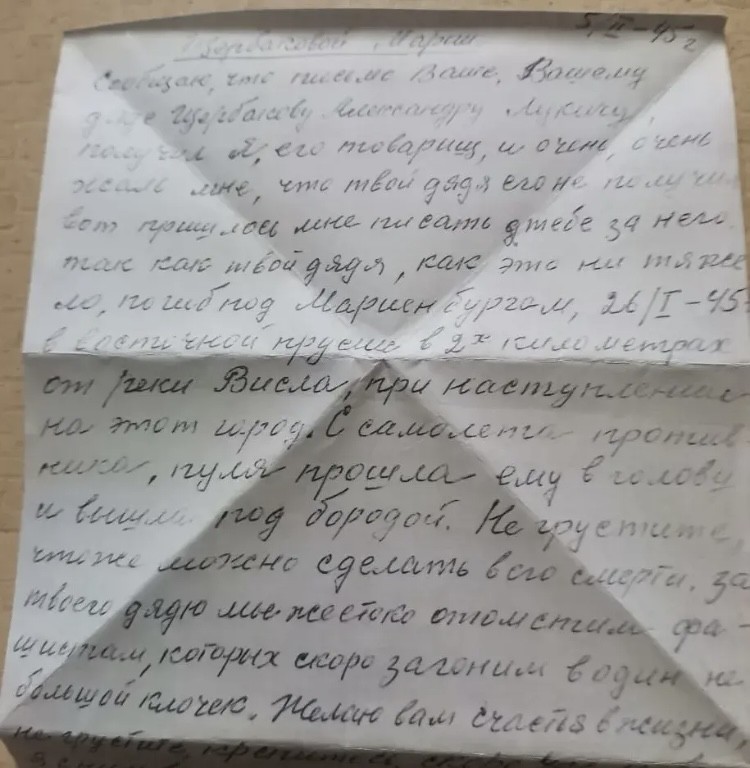 5/II-45г
Щербаковой Марии
Сообщаю, что письмо Ваше, Вашему
дяде Щербакову Александру Лукичу,
получил я, его товарищ, и очень, очень
жаль мне, что твой дядя его не получил
вот пришлось мне писать тебе за него.
так как твой дядя, как это ни тяже
ло, погиб под Мариенбургом, 26/I-45г
в восточной пруссии в 2х километрах
от реки Висла, при наступлении
на этот город. С самолета против
ника, пуля прошла ему в голову
и вышла под бородой. Не грустите,
чтоже можно сделать в его смерти. за
твоего дядю мы жестоко отомстим фа-
шистам, которых скоро загоним в один не
большой клочек. Желаю вам счастья в жизни,
не грустите, крепитесь